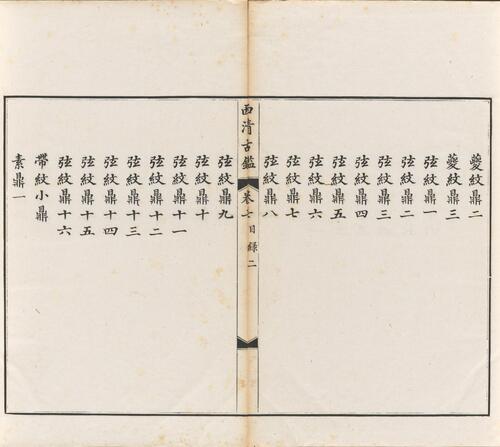 夔紋鼎二
夔紋鼎三
弦紋鼎一
弦紋鼎二
弦紋鼎三
弦紋鼎四
弦紋鼎五
弦紋鼎六
弦紋鼎七
弦紋鼎八
西清古鑑
卷七目錄
二
弦紋鼎九
弦紋鼎十
弦紋鼎十一
弦紋鼎十二
弦紋鼎十三
弦紋鼎十四
弦紋鼎十五
弦紋鼎十六
帶紋小鼎
素鼎一